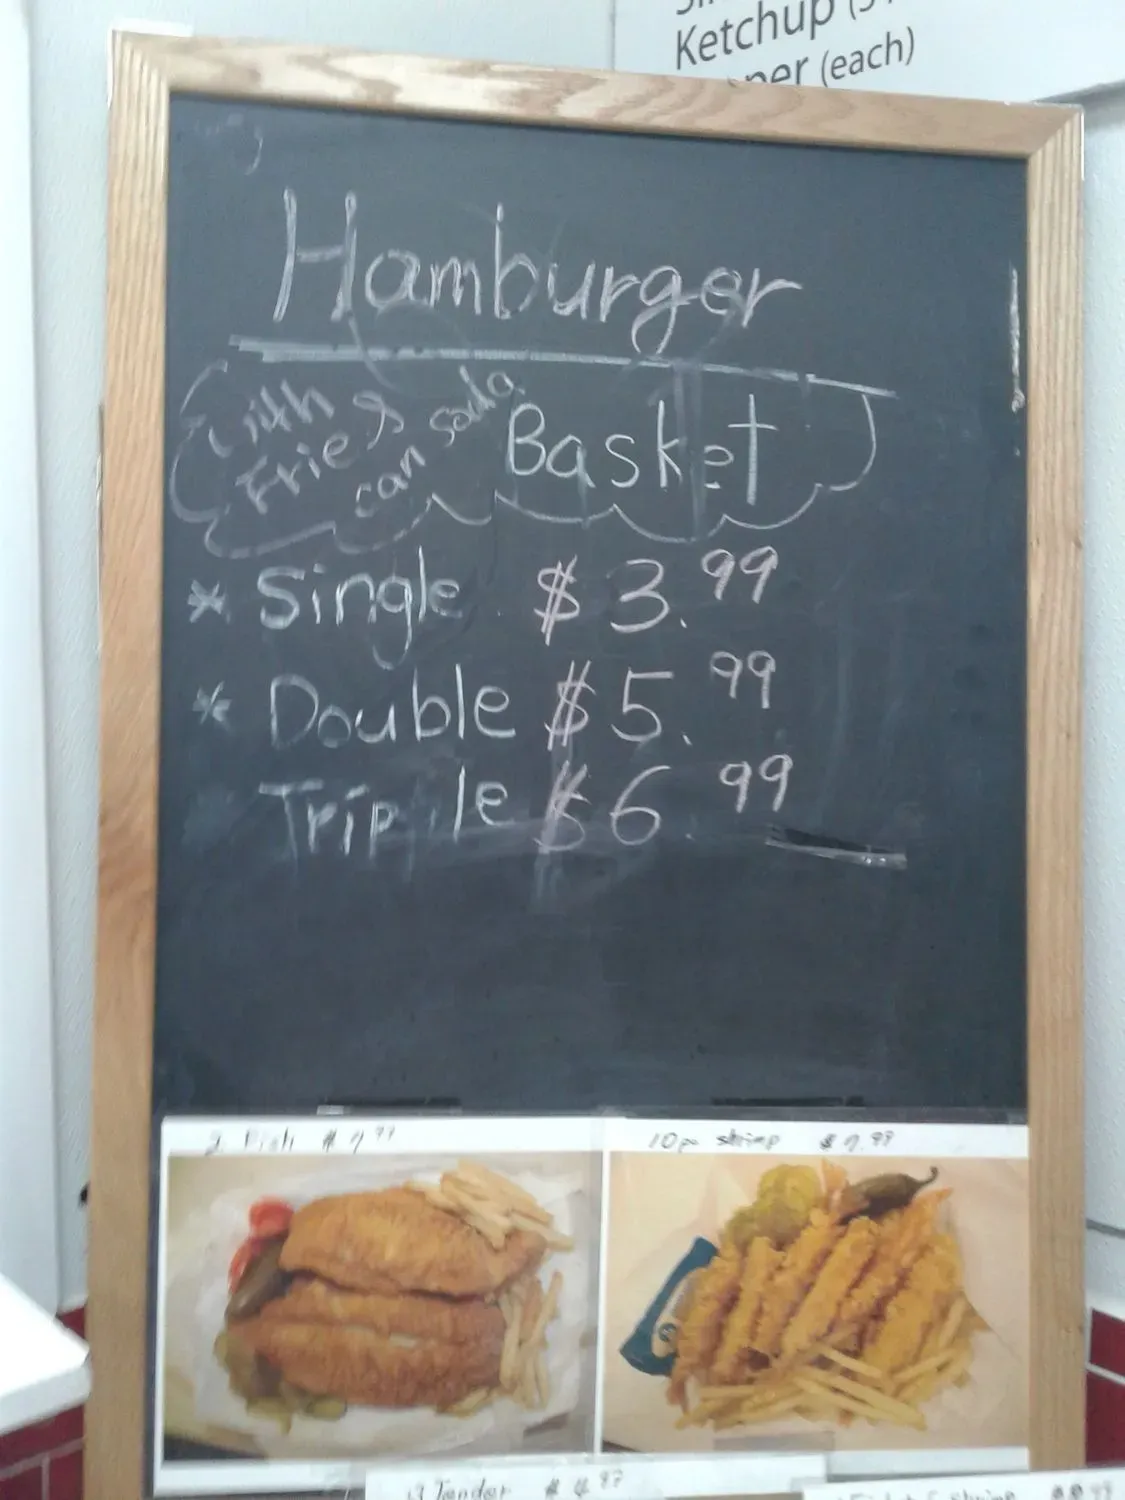 Ketchup
(each)
Hamburger
with
Fries &
can soda
Basket
* Single $3.99
* Double $5.99
Triple $6.99
2 Fish $7.99
10pc shrimp $9.99
3 Tender $4.97